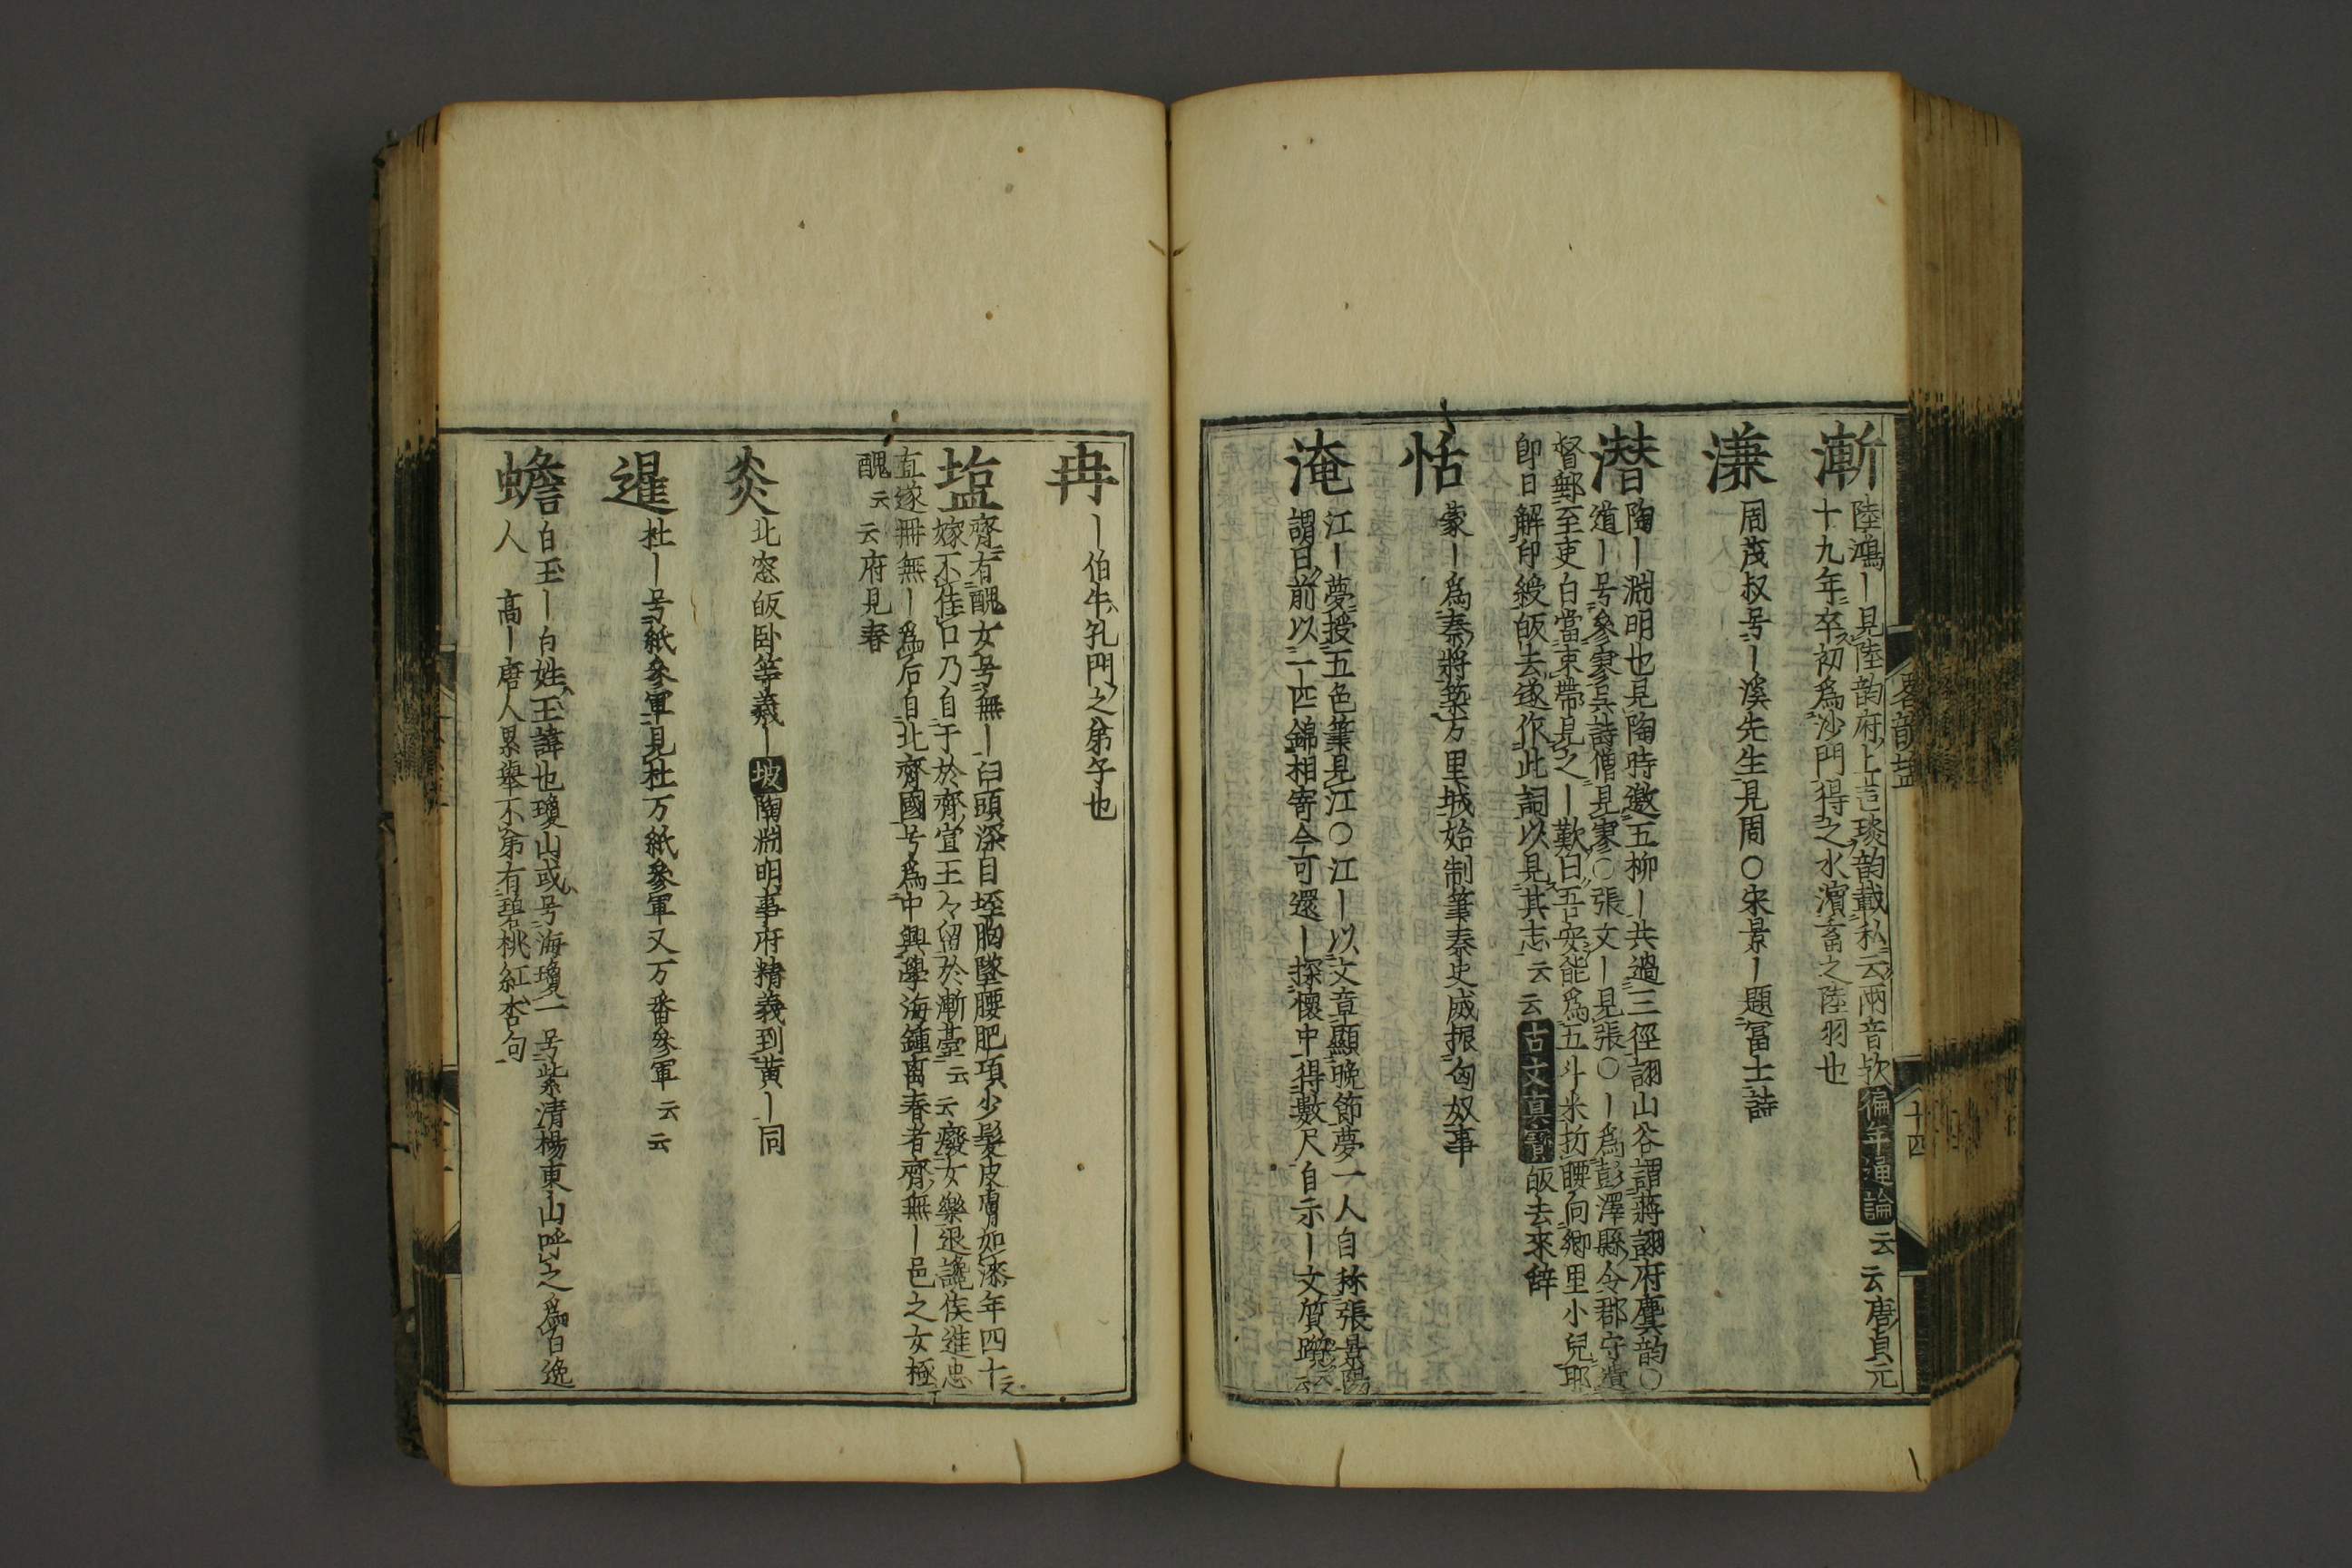 漸
陸鴻ー見陸韵府上声琰韵載私云兩音欤編年通論云云唐貞元
十九年卒初爲沙門得之水濱畜之陸羽也
濂
周茂叔号ー溪先生見周〇宋景ー題冨士詩
潜
陶ー淵明也見陶時邀五柳ー共過三徑詡山谷謂蔣詡府麌韵〇
道ー号參寥呉詩僧見寥〇張文ー見張〇ー爲彭澤縣令郡守遣
督郵至吏白當束帶見之ー歎曰吾安能爲五斗米折腰向郷里小兒耶
卽日解印綬皈去遂作此詞以見其志云云古文真寶皈去來辞
恬
蒙ー爲秦將築万里城始制筆秦史威振匈奴事
淹
江ー夢授五色筆見江〇江ー以文章顯晚節夢一人自称張景陽
謂曰前以一匹錦相寄今可還ー探懷中得數尺自示ー文質躓云云
畧韵塩
十四
冉
ー伯牛孔門之弟子也
塩
齊有醜女号無ー臼頭深目垤胸墜腰肥項少髮皮膚如漆年四十
嫁不售口乃自于於齊宣王々留於漸臺云云癈女樂退讒侫進忠
直遂冊無ー爲后自北齊國号爲中興學海鍾离春者齊無ー邑之女極
醜云云府見春
炎
北窓皈卧等羲ー坡陶淵明事府精義到黄ー同
暹
杜ー号紙參軍見杜万紙參軍又万番參軍云云
蟾
白玉ー白姓玉諱也瓊山或号海瓊一号紫清楊東山呼之爲百逸
人 髙ー唐人累舉不第有碧桃紅杏句